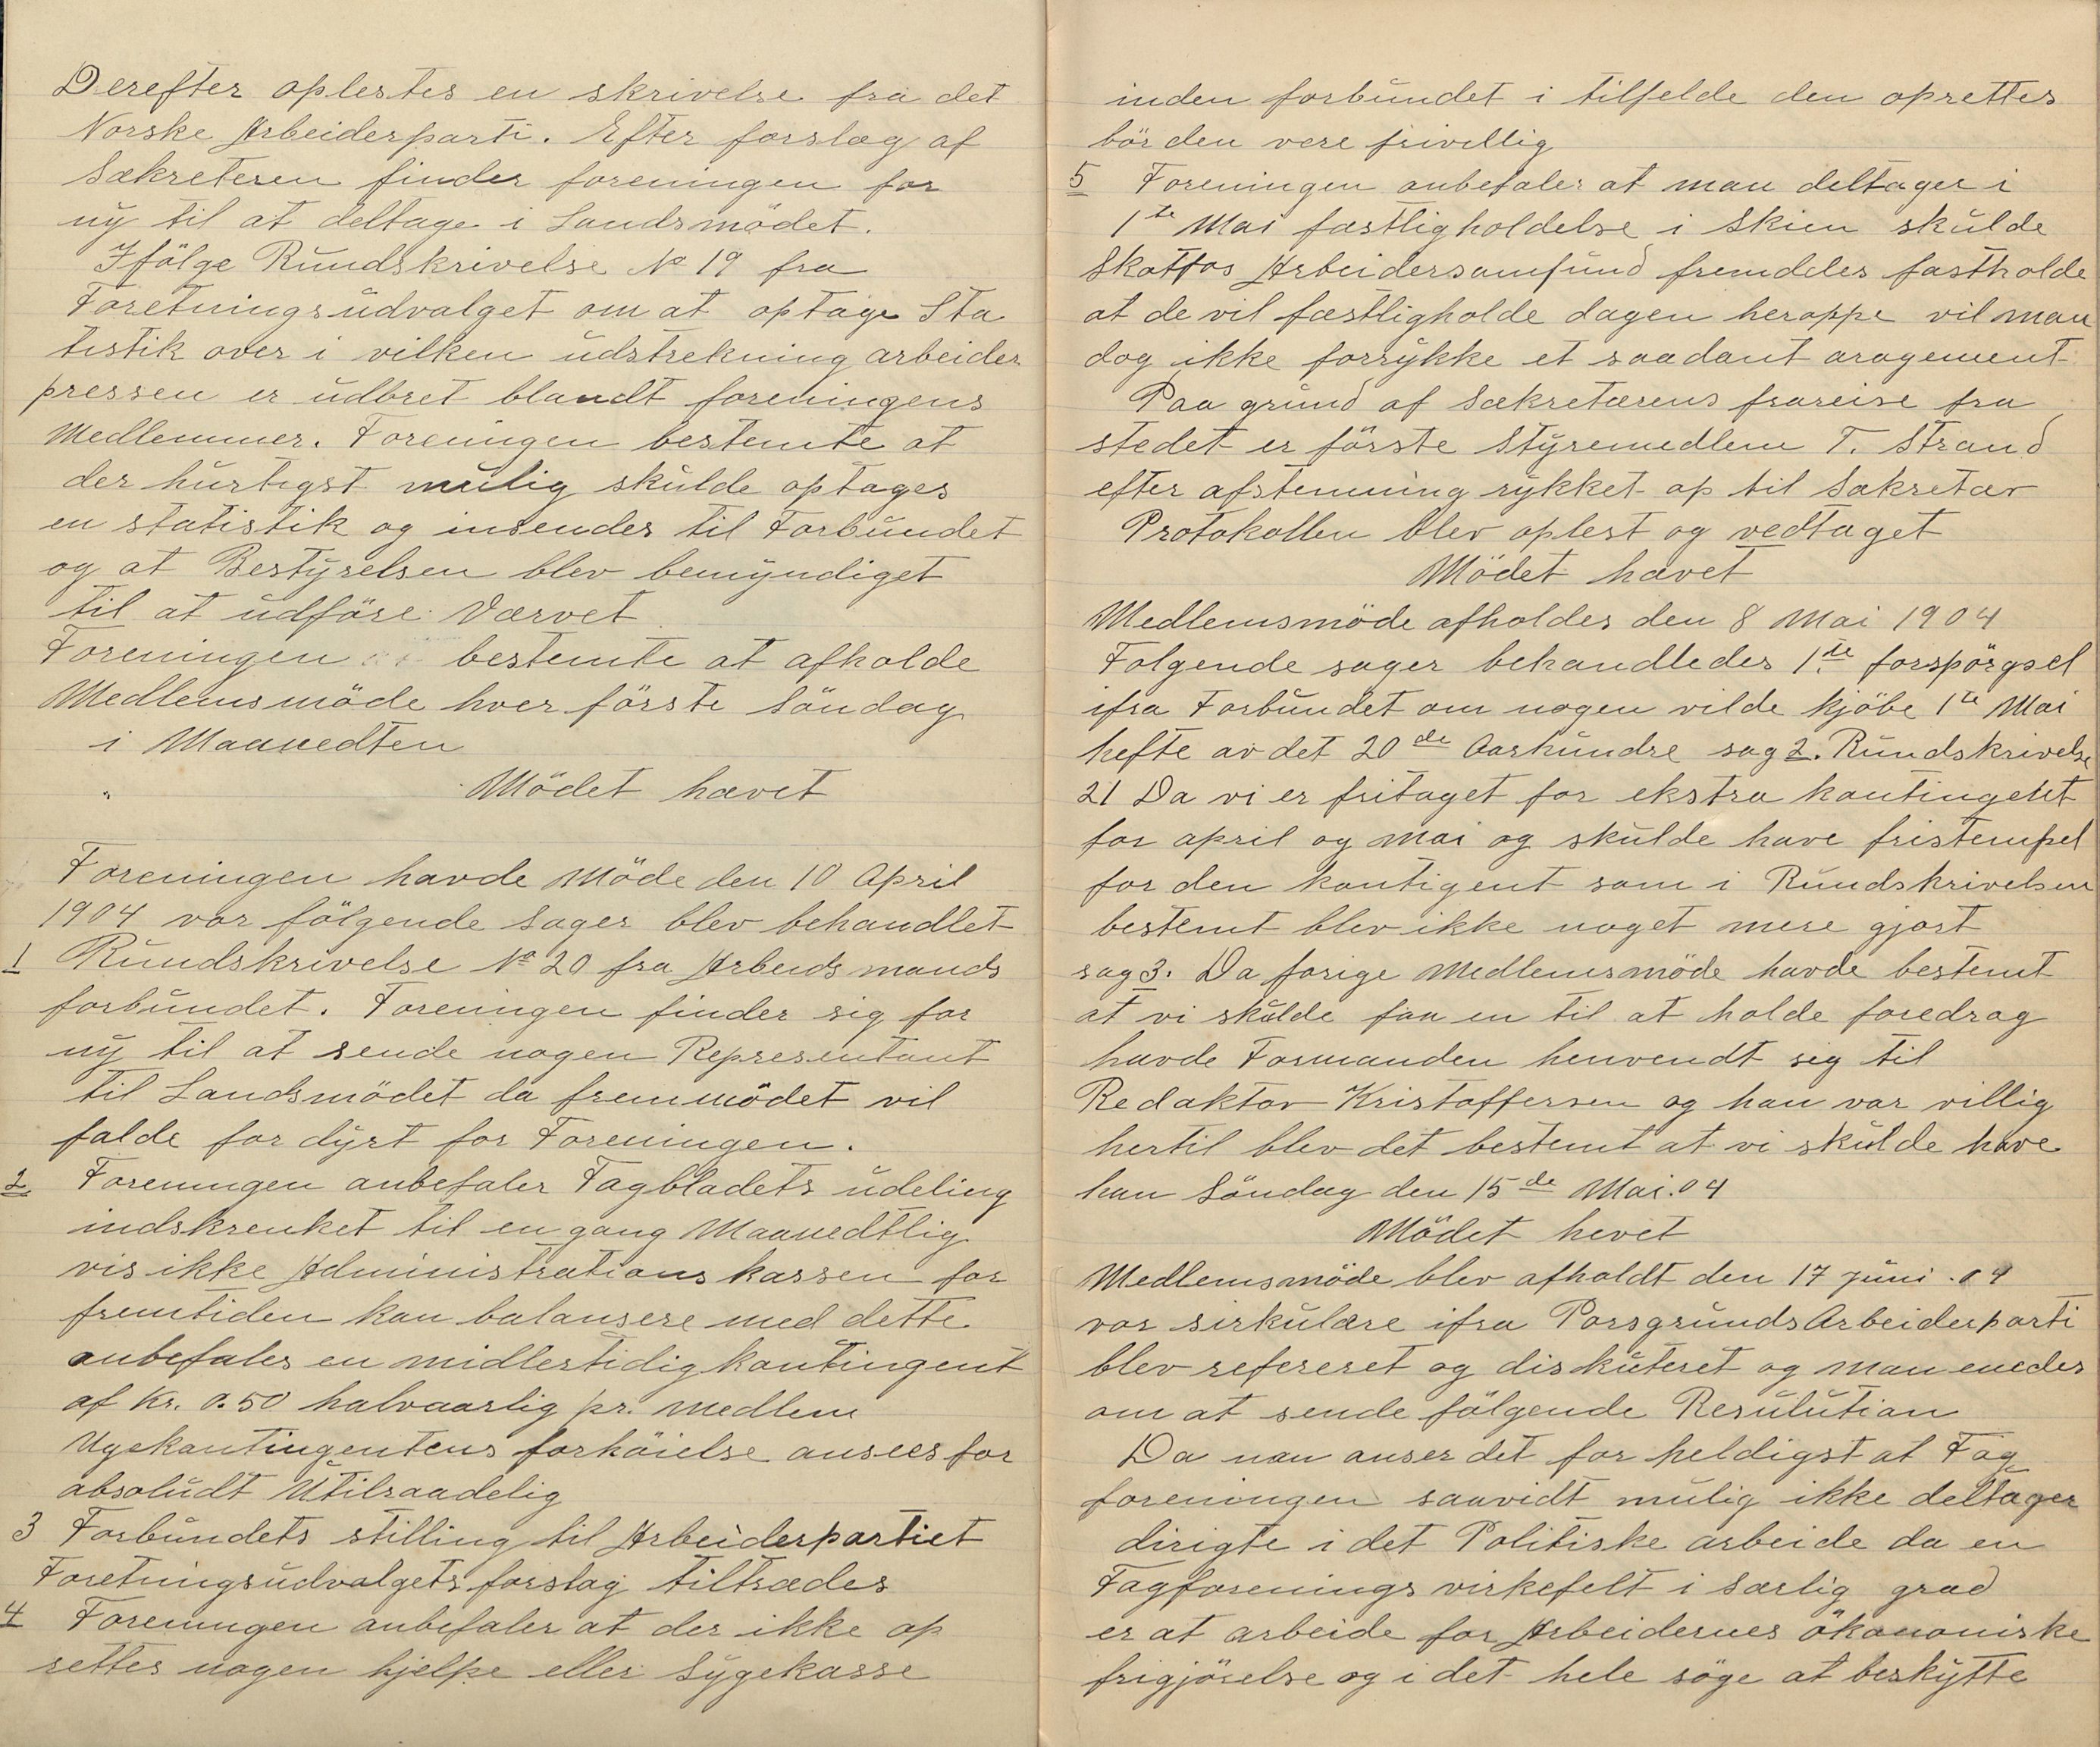 Derefter oplestes en skrivelse fra det
Norske Arbeiderparti. Efter forslag af
Sækreteren finder foreningen for
ny til at deltage i Landsmödet.
Ifölge Rundskrivelse No 19 fra
Foretningsudvalget om at optage Sta
tistik over i vilken udstrekning arbeider
pressen er udbret blandt foreningens
Medlemmer. Foreningen bestemte at
der hurtigst mulig skulde optages
en statistik og insendes til Forbundet
og at Bestyrelsen blev bemyndiget
til at udföre Værvet
Foreningen bestemte at afholde
Medlemsmöde hver förste Söndag
i Maanedten
Mödet hævet
Foreningen havde Möde den 10 April
1904 vor fölgende Sager blev behandlet
1 Rundskrivelse No 20 fra Arbeidsmands
forbundet. Foreningen finder sig for
ny til at sende nogen Representant
til Landsmödet da fremmödet vil
falde for dyrt for Foreningen.
2 Foreningen anbefaler Fagbladets udeling
indskrenket til en gang Maanedtlig
vis ikke Administrations kassen for
fremtiden kan balansere med dette
anbefales en midlertidig kontingent
af Kr. 0.50 halvaarlig pr. medlem
Ugekontingentens forhöielse ansees for
absoludt Utilraadelig
3 Forbundets stilling til Arbeiderpartiet
Foretningsudvalgets forslag tiltrædes
4 Foreningen anbefaler at der ikke op
rettes nogen hjelpe eller Sygekasse
inden forbundet i tilfelde den oprettes
bör den vere frivillig
5 Foreningen anbefaler at man deltager i
1te Mai fæstligholdelse i Skien skulde
Skotfos Arbeidersamfund fremdeles fastholde
at de vil fæstligholde dagen heroppe vil man
dog ikke forrykke et saadant aragement
Paa grund af Sækretærens frareise fra
stedet er förste Styremedlem T. Strand
efter afstemning rykket op til Sækretær
Protokollen blev oplest og vedtaget
Mödet hævet
Medlemsmöde afholdes den 8 Mai 1904
Folgende sager behandledes 1te forspörgsel
ifra Forbundet om nogen vilde kjöbe 1te Mai
hefte av det 20de Aarhundre sag 2. Rundskrivelse
21 Da vi er fritaget for ekstra kontingent
for april og mai og skulde have fristempel
for den kontigent som i Rundskrivelsen
bestemt blev ikke noget mere gjort
sag 3. Da forige Medlemsmöde havde bestemt
at vi skulde faa en til at holde foredrag
havde Formanden henvendt sig til
Redaktor Kristoffersen og han var villig
hertil blev det bestemt at vi skulde have
han Söndag den 15de Mai. 04
Mödet hevet
Medlemsmöde blev afholdt den 17 juni .04
vor sirkulære ifra Porsgrunds Arbeiderparti
blev refereret og diskuteret og man enedes
om at sende fölgende Resulution
Da man anser det for heldigst at Fag
foreningen saavidt mulig ikke deltager
dirigte i det Politiske arbeide da en
Fagforenings virkefelt i Særlig grad
er at arbeide for Arbeidernes ökonomiske
frigjörelse og i det hele söge at beskytte